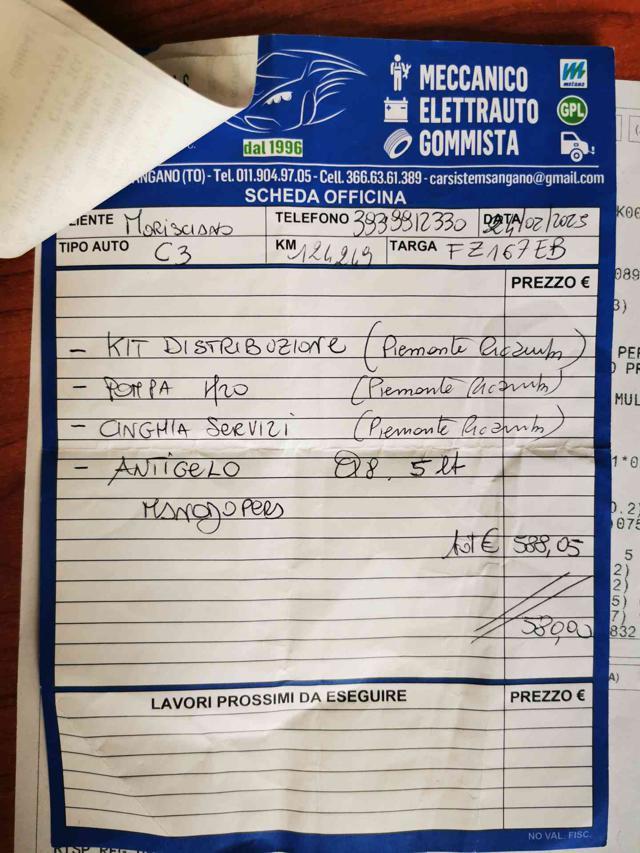 MECCANICO
ELETTRAUTO
GOMMISTA
metano
GPL
dal 1996
SANGANO (TO) - Tel. 011.904.97.05 - Cell. 366.63.61.389 - carsistemsangano@gmail.com
SCHEDA OFFICINA
CLIENTE Morisciano TELEFONO 3939912330 DATA 24/02/2025
TIPO AUTO C3 KM 124249 TARGA FZ167EB
PREZZO €
- KIT DISTRIBUZIONE (Piemonte Ricambi)
- POMPA H2O (Piemonte Ricambi)
- CINGHIA SERVIZI (Piemonte Ricambi)
- ANTIGELO Q8 5 lt
MANODOPERA
tot € 588,05
580,00
LAVORI PROSSIMI DA ESEGUIRE PREZZO €
NO VAL. FISC.